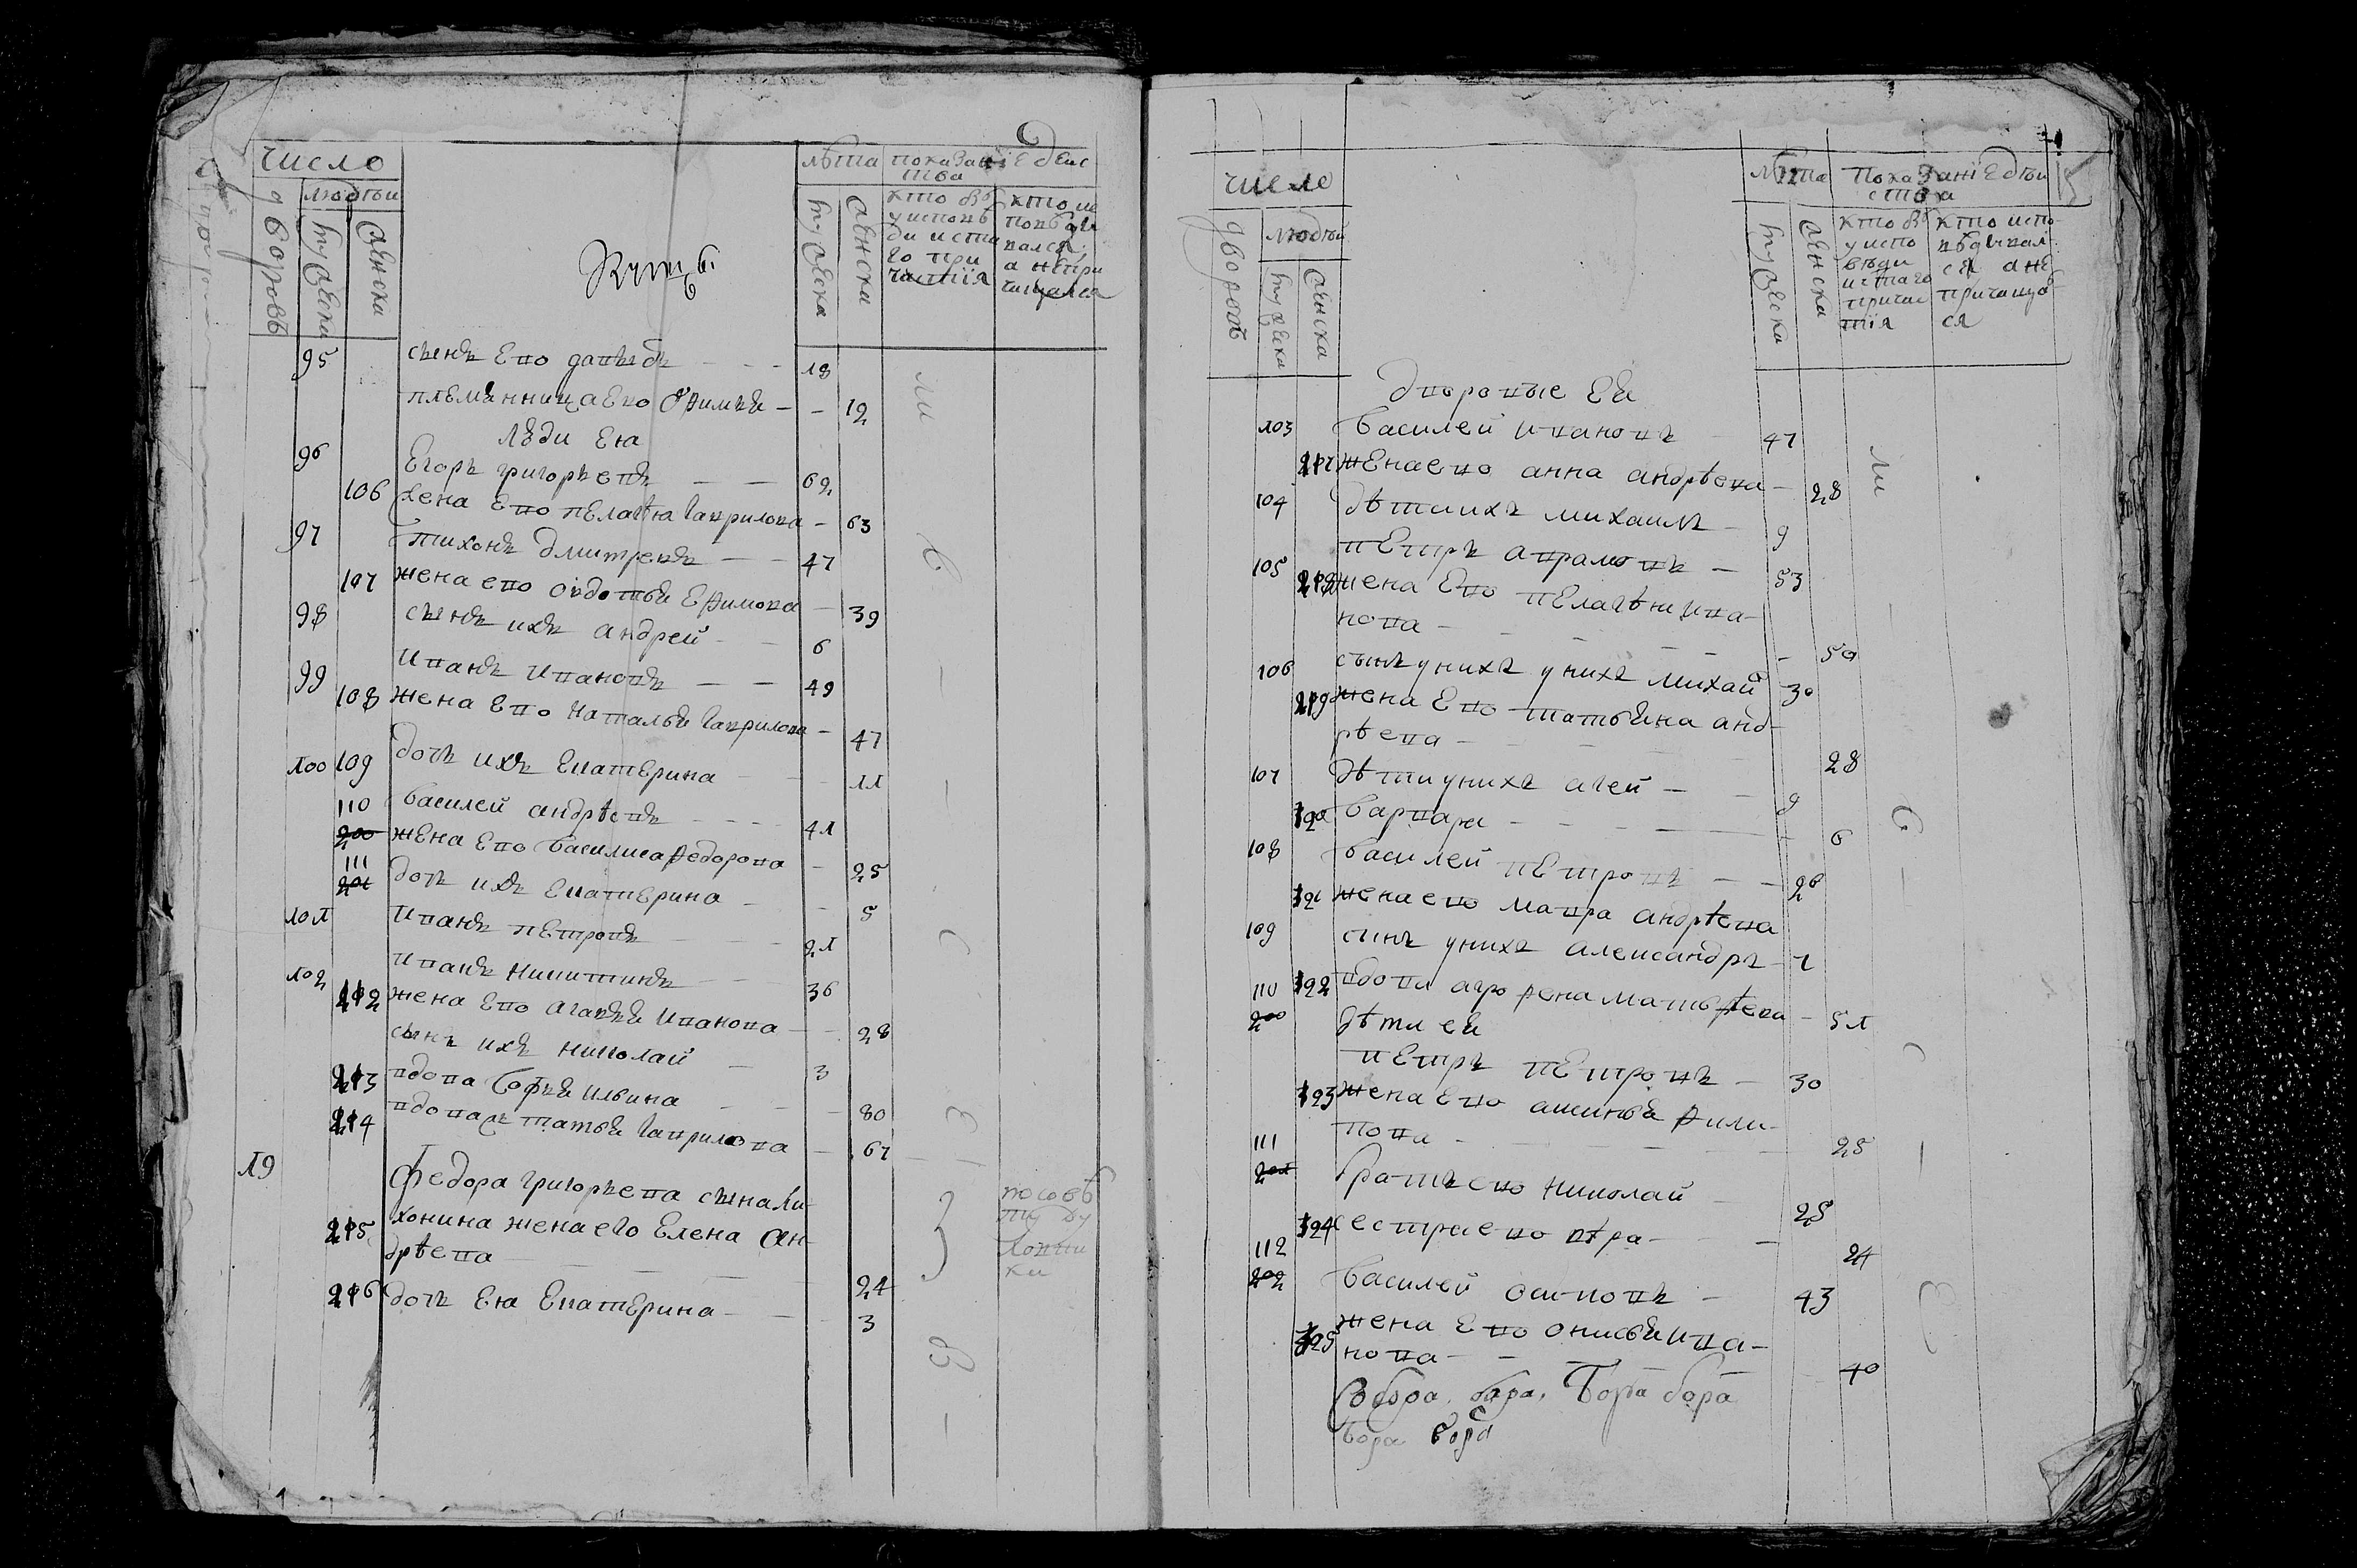 число
лѣта показанiе дейс
тва
людѣи
дворовъ
мужеска
женска
мужеска
женска
кто былъ
у исповѣ
ди и ста
го при
частiя
кто ис
повѣды
вался
а непри
чащался
95 сынъ его давыдъ 18
племянница его Офимья 12
люди ея
96 Егоръ григорьевъ 62
106 жена его пелагея гаврилова 63
97 тихонъ дмитревъ 47
107 жена его овдотья Ефимова 39
98 сынъ ихъ андрей 6
99 иванъ ивановъ 49
108 жена его наталья гаврилова 47
100 109 дочь ихъ екатерина 11
110 василей андрѣевъ 41
200 жена его василиса федорова 25
111
201 дочь ихъ екатерина 5
101 иванъ петровъ 21
102 иванъ никитинъ 36
112 жена его агафья иванова 28
сынъ ихъ николай 3
113 вдова софья ильина 80
114 вдова татья гаврилова 67
19 федора григорьева сына ли-
115 хонина жена его елена ан-
дрѣева 24
116 дочь ея екатерина 3
число
лѣта показанiе дѣи
ства
дворовъ
людѣй
мужеска
женска
мужеска
женска
кто былъ
у испо
вѣди
и стаго
причас
тiя
кто испо-
вѣдывал
ся а не
причащал
ся
дворовые ея
103 василей ивановъ 47
117 жена его анна андрѣева 28
104 дѣти ихъ михаилъ 9
105 петръ аврамовъ 53
118 жена его пелагѣя ива-
нова 50
106 сынъ у нихъ у нихъ михай 30
119 жена его татьяна анд-
рѣева 28
107 дѣти у нихъ агей 9
120 варвара 6
108 василей петровъ 26
121 жена его мавра андрѣева
109 синъ у нихъ александръ 1
110 122 вдова агрофена матвѣева 51
200 дѣти ея
петръ петровъ 30
123 жена его аксинья фили-
пова 25
111
201 братъ его николай 25
124 сестра его вѣра 24
112
202 василей осиповъ 43
125 жена его онисья ива-
нова 40
бора бора
бора бора